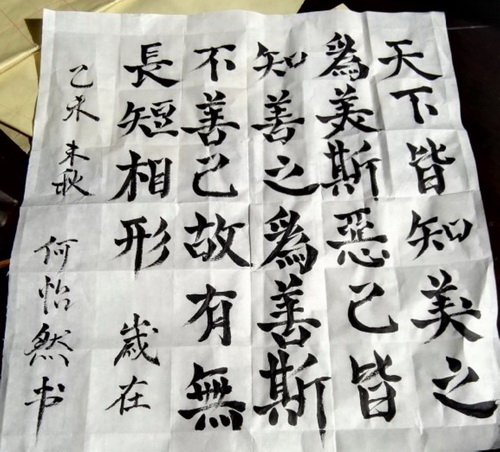 天下皆知美之
爲美斯惡已皆
知善之爲善斯
不善已故有無
長短相形 歲在
乙未 末秋 何怡然书